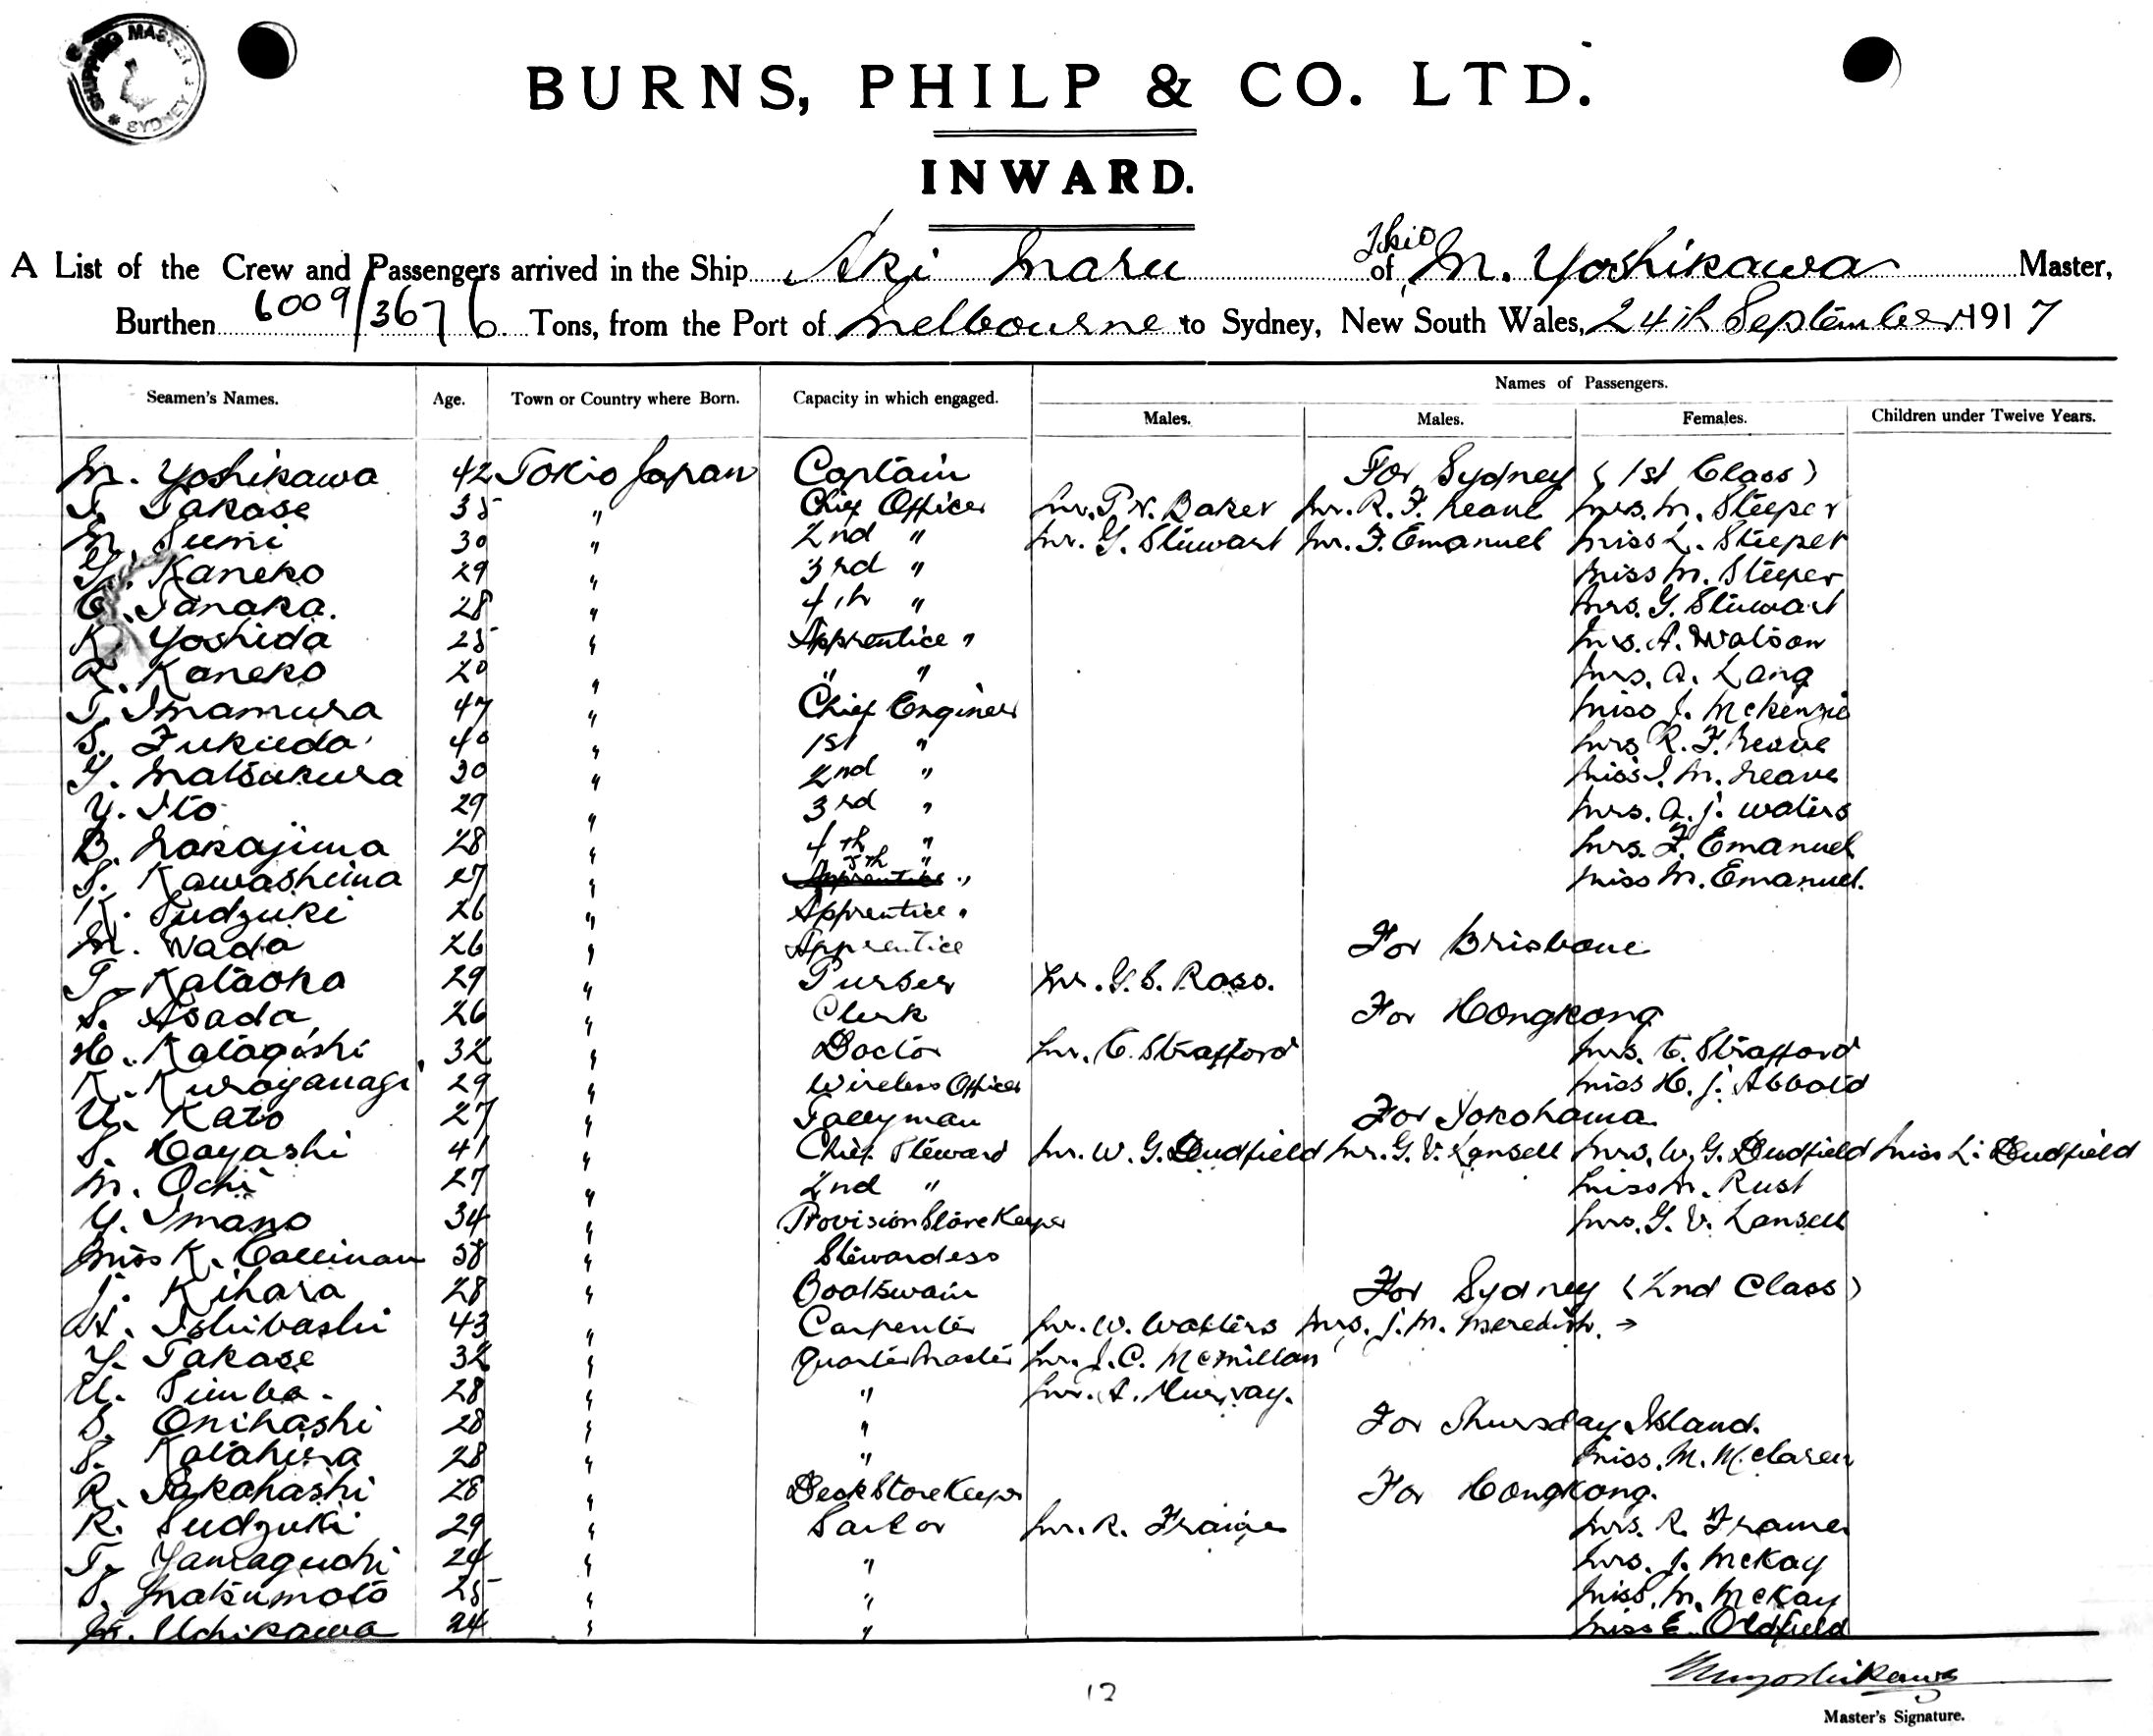 SHIPPING MASTER
SYDNEY
BURNS, PHILP & CO. LTD.
INWARD.
A List of the Crew and Passengers arrived in the Ship Aki Maru of Tokio M. Yoshikawa Master,
Burthen 6009/3676 Tons, from the Port of Melbourne to Sydney, New South Wales, 24th September 1917
Names of Passengers.
Seamen's Names. Age. Town or Country where Born. Capacity in which engaged. Males. Males. Females. Children under Twelve Years.
M. Yoshikawa 42 Tokio Japan Captain For Sydney (1st Class)
T. Takase 35 " Chief Officer Mr. P. N. Baker Mr. R. F. Neave Mrs. M. Steeper
M. Sumi 30 " 2nd " Mr. G. Stewart Mr. F. Emanuel Miss L. Steeper
Kaneko 29 " 3rd " Miss M. Steeper
Tanaka. 28 " 4th " Mrs. G. Stewart
K. Yoshida 25 " Apprentice " Mrs. A. Watson
R. Kaneko 20 " " " Mrs. A. Lang
T. Imamura 47 " Chief Engineer Miss J. McKenzie
S. Fukuda 40 " 1st " Mrs R. F. Neave
Y. Matsukura 30 " 2nd " Miss I. M. Neave
Y. Ito 29 " 3rd " Mrs. A. J. Waters
B. Nakajima 28 " 4th " Mrs. F. Emanuel
S. Kawashima 27 " 5th " Apprentice " Miss M. Emanuel.
K. Sudzuki 26 " Apprentice "
M. Wada 26 " Apprentice For Brisbane
T. Kataoka 29 " Purser Mr. G. S. Ross.
S. Asada 26 " Clerk For Hongkong
H. Katagishi 32 " Doctor Mr. C. Strafford Mrs. C. Strafford
K. Kuroyanagi 29 " Wireless Officer Miss H. J. Abbott
U. Kato 27 " Tallyman For Yokohama
S. Hayashi 41 " Chief Steward Mr. W. G. Dudfield Mr. G. V. Lansell Mrs. W. G. Dudfield Miss L. Dudfield
M. Ochi 27 " 2nd " Miss M. Rust
Y. Imano 34 " Provision Store Keeper Mrs. G. V. Lansell
Miss K. Callinan 38 " Stewardess
J. Kihara 28 " Boatswain For Sydney (2nd Class)
H. Ishibashi 43 " Carpenter Mr. W. Watters Mrs. J. M. Meredith. →
Y. Takase 32 " Quartermaster Mr. J. C. McMillan
U. 28 " " Mr. A. Murray.
S. Onihashi 28 " " For Thursday Island.
S. Katahira 28 " " Miss. M. McLaren
R. Takahashi 28 " Deck Store Keeper For Hongkong.
R. Sudzuki 29 " Sailor Mr. R. Frame Mrs. R. Frame
T. Yamaguchi 24 " " Mrs. J. McKay
S. Matsumoto 25 " " Miss. M. McKay
Uchikawa 24 " " Miss E. Oldfield
M Yoshikawa
12
Master's Signature.